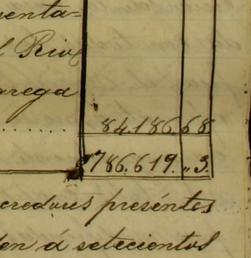 enta=
l Rive
arega
..... 84.186.68
$786.619.„3.
credores presentes
den á setecientos